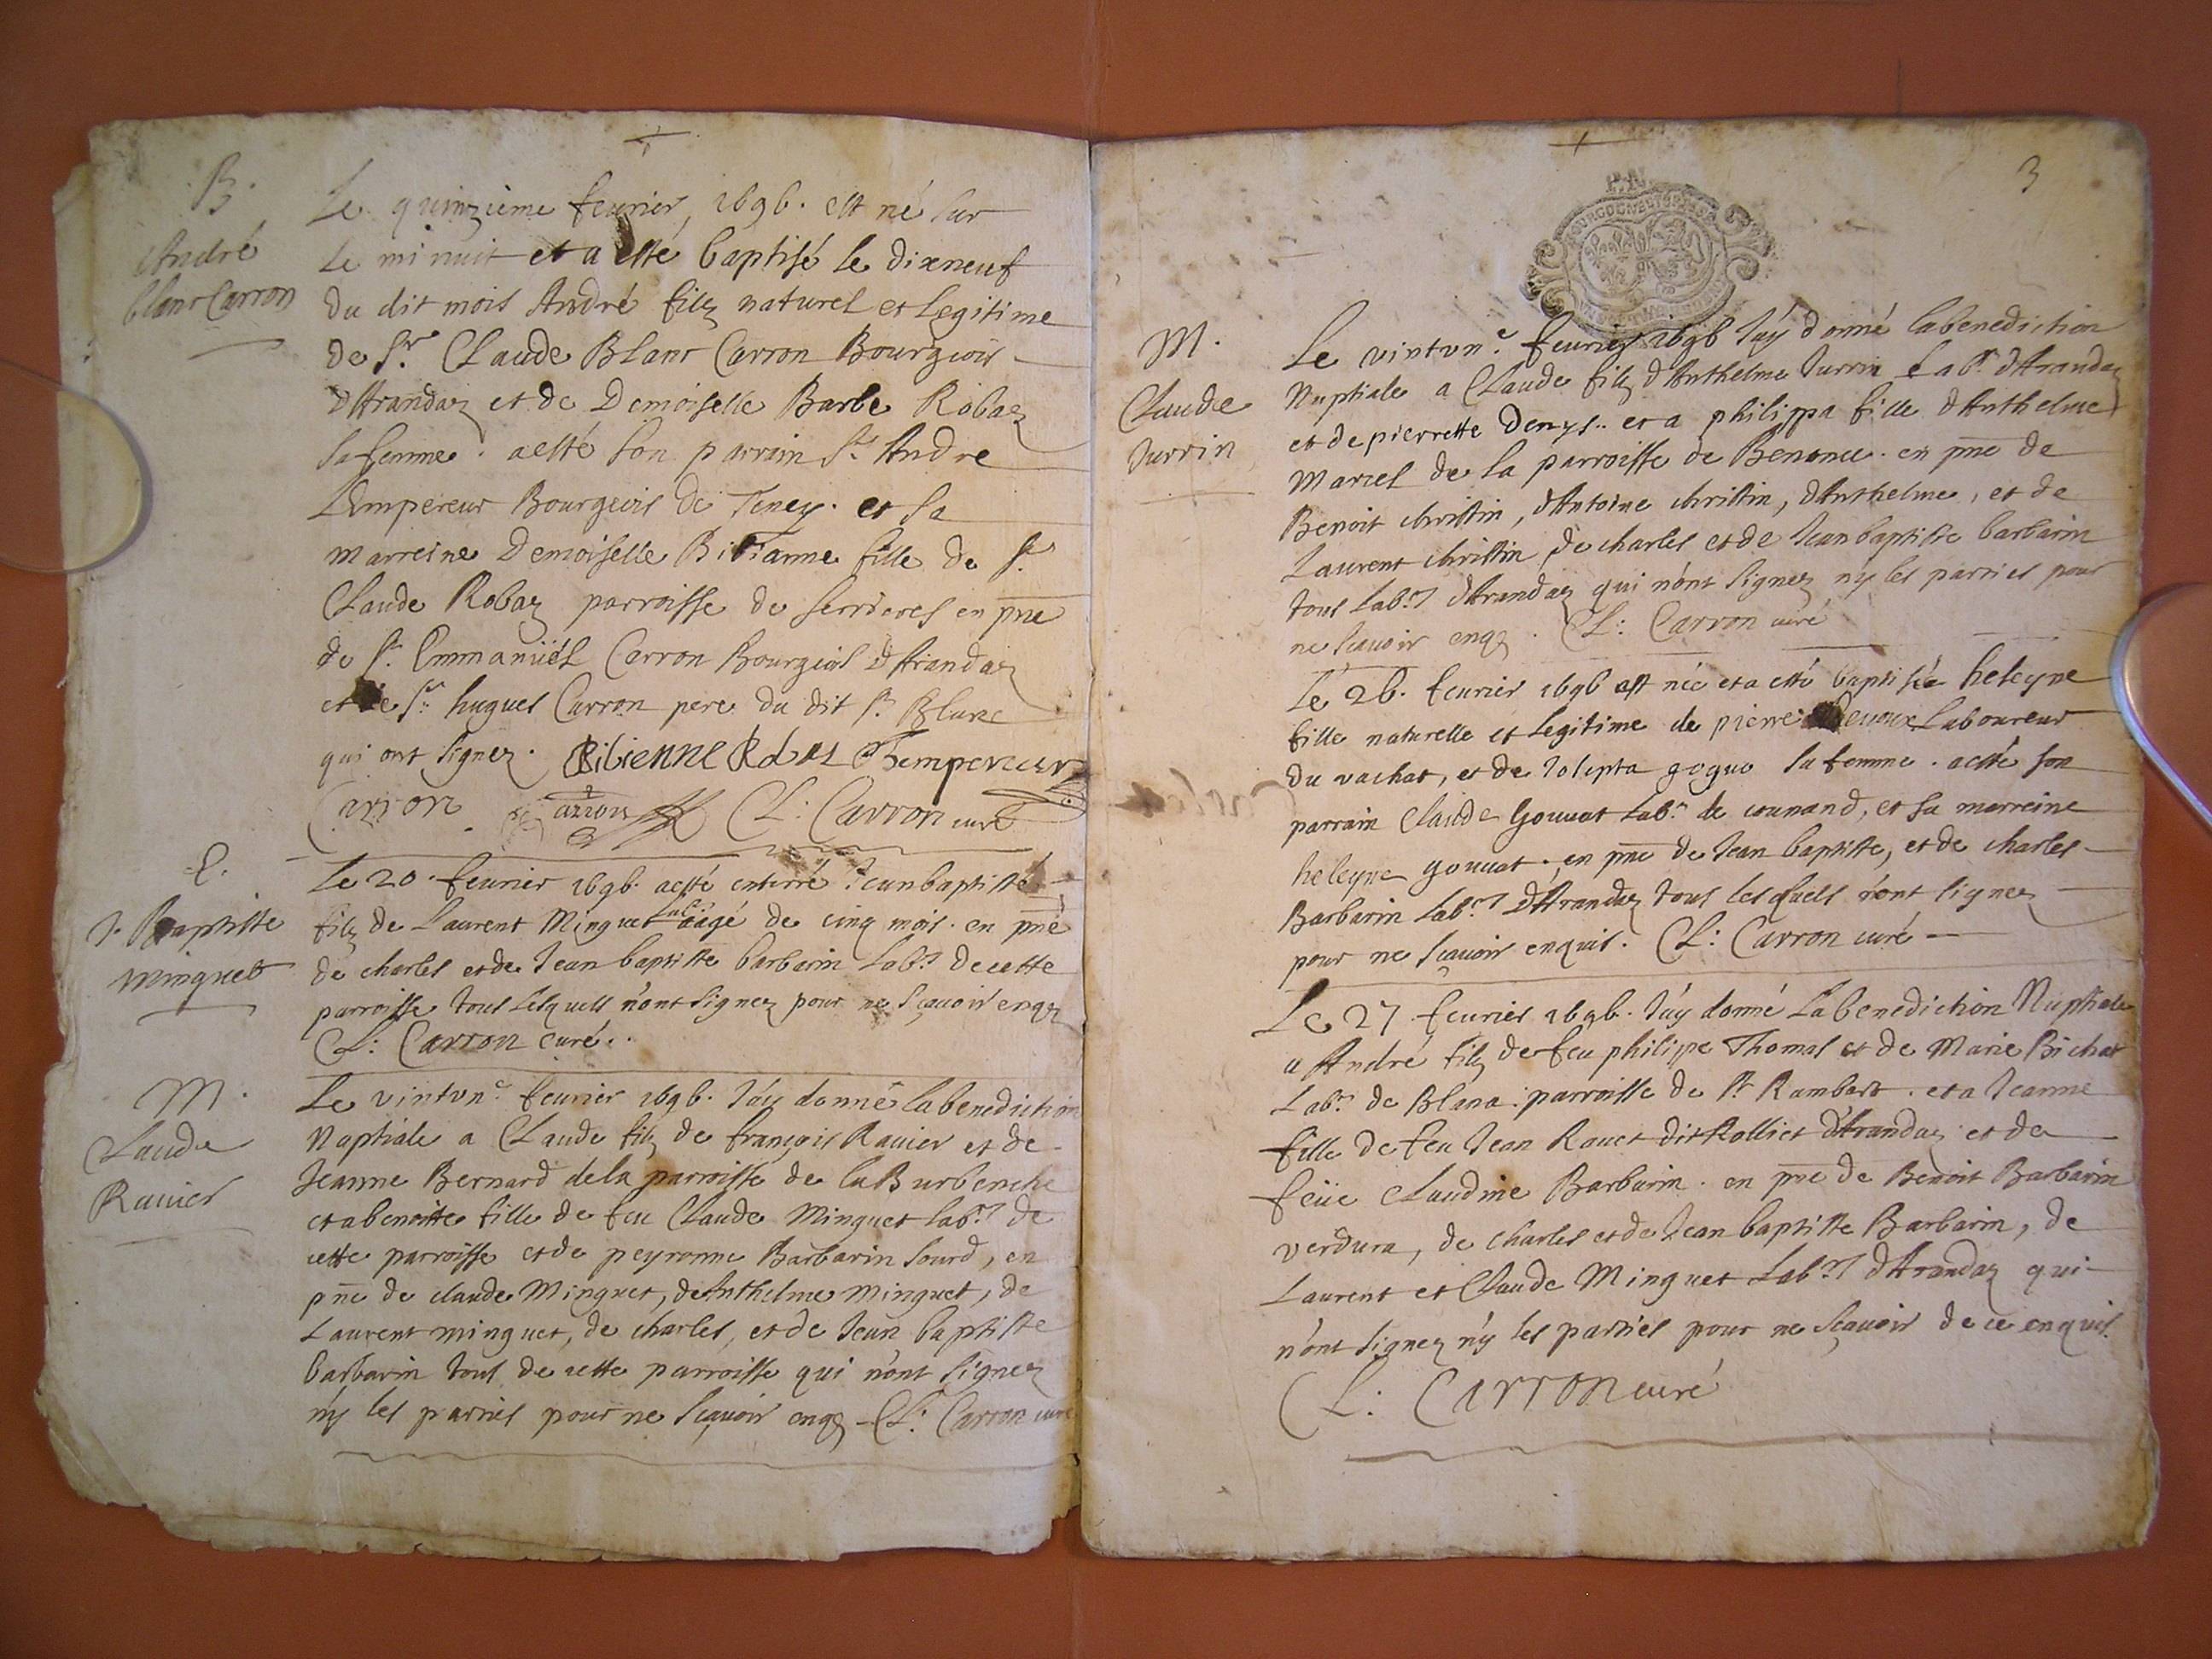 B.
André
blanc Carron
Le quinzieme feurier, 1696. est né sur
Le mi nuit et a esté baptisé le dixneuf
du dit mois André filz naturel et legitime
de Sr. Claude Blanc Carron Bourgeois
d'Arandaz et de Demoiselle Barbe Robaz
sa femme. a esté son parrain Sr. Andre
L'Empereur Bourgeois de Teney. et sa
marreine Demoiselle Bibianne fille de Sr.
Claude Robaz parroisse de serrieres en pñce
de Sr. Emmanüel Carron Bourgeois d'Arandaz
et de Sr. hugues Carron pere du dit Sr. Blanc
qui ont signez. Lempereur
Carron carron CL: Carron curé
E.
J. Baptiste
Minguet
Le 20. feurier 1696. a esté enterré Jean baptiste
filz de Laurent Minguet aagé de cinq mois. en pñce
de charles et de Jean baptiste barbarin Labrs. de cette
parroisse tous lesquels n'ont signez pour ne sçauoir enqz
CL: Carron curé..
M.
Claude
Rauier
Le vintvne. feurier 1696. J'ay donné la benediction
Nuptiale a Claude filz de françois Rauier et de
Jeanne Bernard de la parroisse de la Burbenche
et a benoitte fille de feu Claude Minguet labr. de
cette parroisse et de peyronne Barbarin sourd, en
pñce de claude Minguet, de Anthelme Minguet, de
Laurent minguet, de charles, et de Jean baptiste
barbarin tous de cette parroisse qui n'ont signez
n'y les parties pour ne sçauoir enqz CL: Carron curé
3
M.
Claude
Jurrin
Le vintvne. feurier 1696 J'ay donné la benediction
Nuptiale a Claude filz d'Anthelme Jurrin Labr. d'Arandaz
et de pierrette Denys.. et a philippa fille d'Anthelme
Marcel de la parroisse de Benonce. en pñce de
Benoit christin, d'Antoine christin, d'Anthelme, et de
Laurent christin, de charles et de Jean baptiste barbarin
tous Labrs. d'Arandaz qui n'ont signez n'y les parties pour
ne sçauoir enqz. CL: Carron curé
Le 26. feurier 1696 est née et a esté baptisée heleyne
fille naturelle et legitime de pierre Laboureur
du vachat, et de Josepta goguo sa femme. a esté son
parrain Claude Gouuat Labr. de counand, et sa marreine
heleyne gouuat; en pñce de Jean baptiste, et de charles
Barbarin Labrs. d'Arandaz tous lesquels n'ont signez
pour ne sçauoir enquis. CL: Carron curé
Le 27 feurier 1696. J'ay donné La benediction Nuptiale
a André filz de feu philippe Thomas et de Marie Bichat
Labr. de Blana parroisse de St. Rambert. et a Jeanne
fille de feu Jean Rauet dit Rolliet d'Arandaz et de
feüe Claudine Barbarin. en pñce de Benoit Barbarin
verdura, de charles et de Jean baptiste Barbarin, de
Laurent et Claude Minguet Labrs. d'Arandaz qui
n'ont signez n'y les parties pour ne sçauoir de ce enquis.
CL: Carron curé